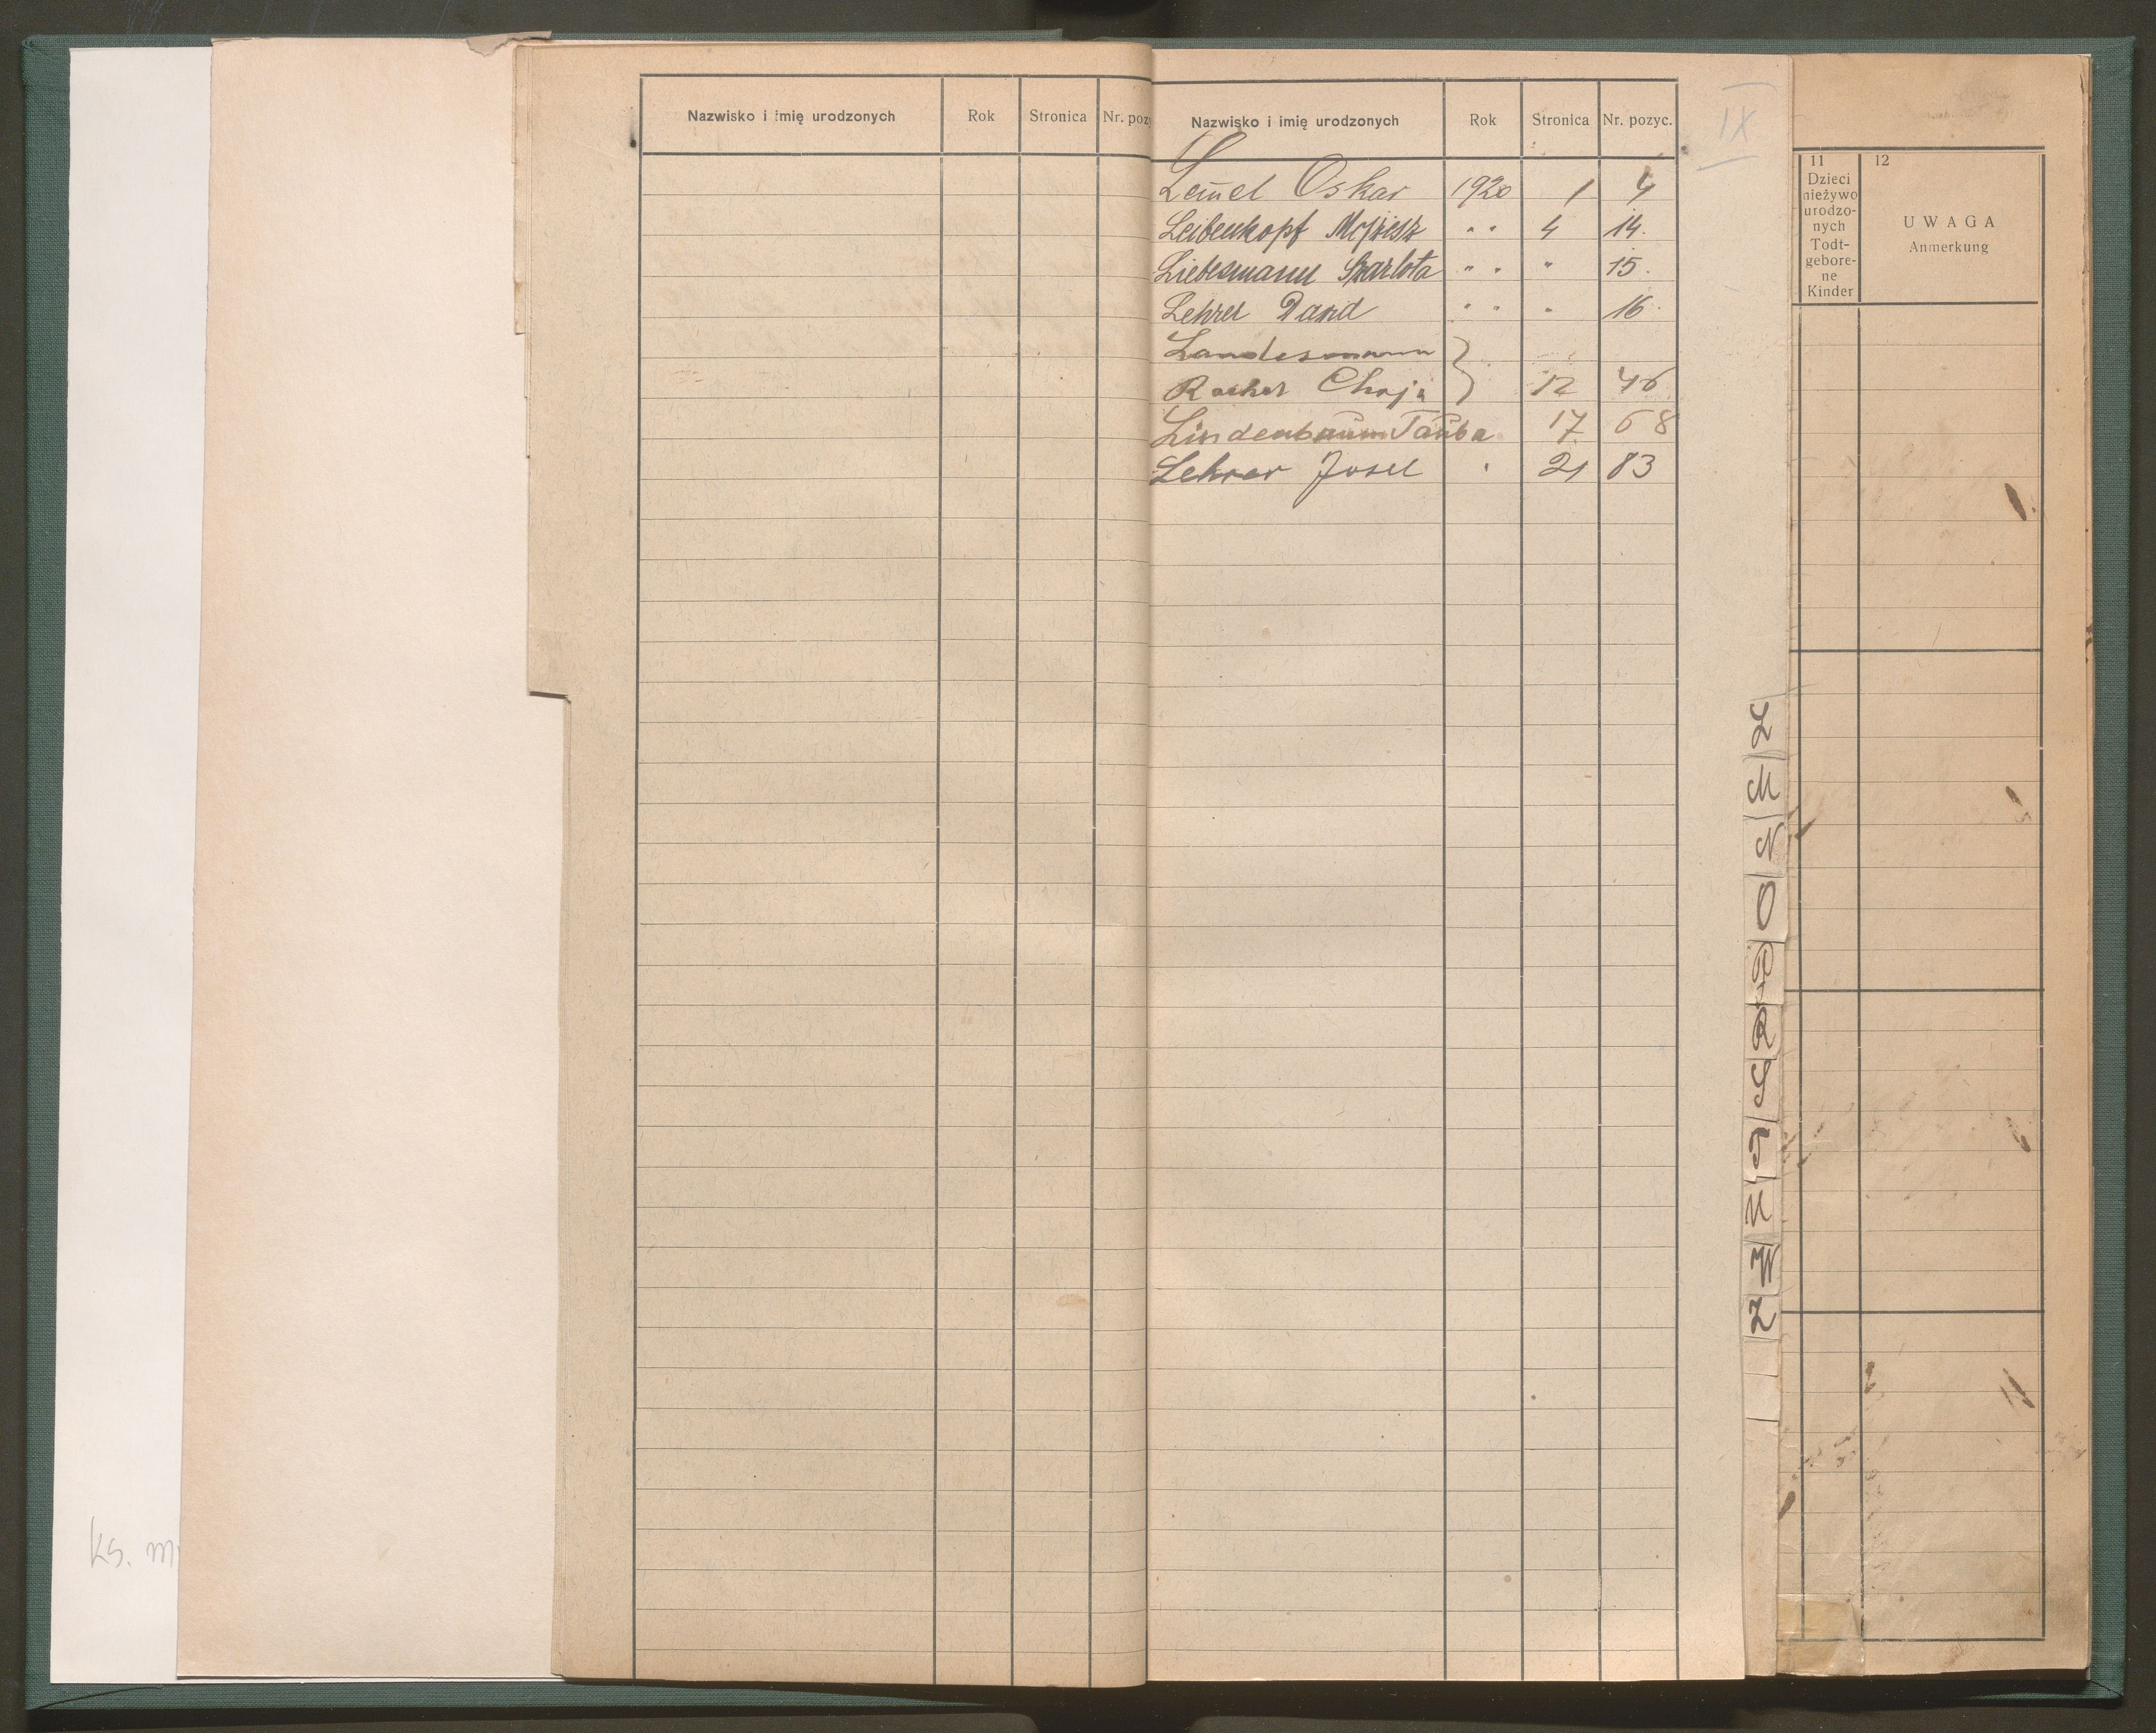 Nazwisko i imię urodzonych Rok Stronica Nr. poz
Nazwisko i imię urodzonych Rok Stronica Nr. pozyc.
IX
L
Leinel Oskar 1920 1 4
Leibenkopf Mojżesz " " 4 14.
Liebesmann Szarlota " " " 15.
Lehrer Dawid " " " 16.
Landesmann }
Rachel Chaja } 12 46
Lindenbaum Tauba 17 68
Lehrer Josel " 21 83
11
Dzieci
nieżywo
urodzo-
nych
Todt-
gebore-
ne
Kinder
12
UWAGA
Anmerkung
L
M
N
O
P
R
S
T
U
W
Z
ks. m